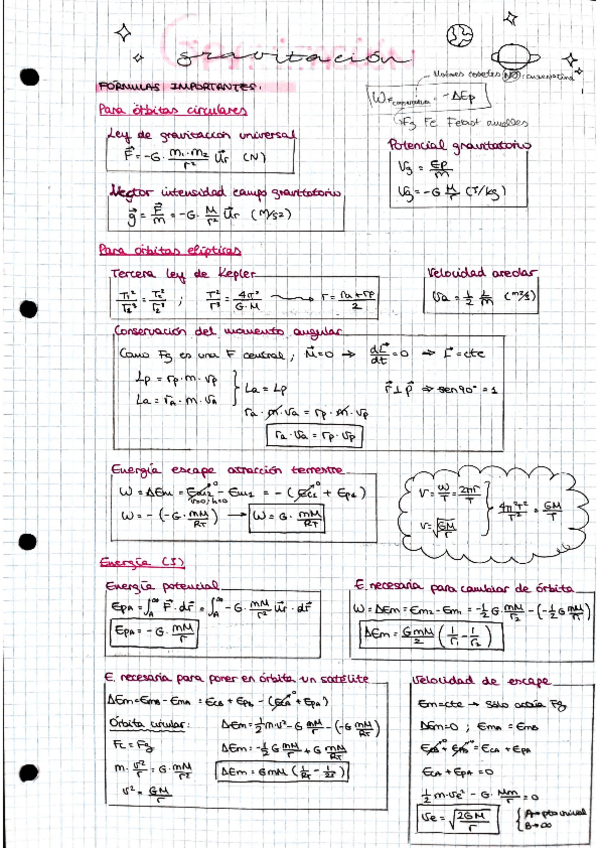 gravitación
FÓRMULAS IMPORTANTES.
W conservativa = -ΔEp
Fg Fe Felast
Para órbitas circulares
Ley de gravitación universal
F⃗ = -G · m₁·m₂/r² u⃗r (N)
Potencial gravitatorio
Vg = Ep/m
Vg = -G M/r (J/kg)
Vector intensidad campo gravitatorio
g⃗ = F⃗/m = -G · M/r² u⃗r (m/s2)
Para órbitas elípticas
Tercera ley de Kepler
T₁²/r₁³ = T₂²/r₂³ ; T²/r³ = 4π²/G·M → r = ra+rp/2
Velocidad areolar
va = 1/2 L/m (m²/s)
Conservación del momento angular
Como Fg es una F central, M⃗=0 ⇒ dL⃗/dt = 0 ⇒ L⃗ = cte
Lp = rp·m·vp
La = rA·m·vA
La = Lp
r⃗⊥p⃗ ⇒ sen90° = 1
ra·m·va = rp·m·vp
ra·va = rp·vp
Energía escape atracción terrestre
W = ΔEm = Em2 - Em1 = -(Ec1 + Ep1)
W = -(-G·mM/RT) → W = G·mM/RT
V = = 2πr/T
V = √GM/r
4π²r²/T² = GM/r
Energía (I)
Energía potencial
EpA = ∫A∞ F⃗·dr⃗ = ∫A∞ -G·mM/r² u⃗r·dr⃗
EpA = -G·mM/r
E. necesaria para cambiar de órbita
W = ΔEm = Em2 - Em1 = -1/2 G·mM/r2 - (-1/2 G mM/r1)
ΔEm = GmM/2 (1/r1 - 1/r2)
E. necesaria para poner en órbita un satélite
ΔEm = EmB - EmA = EcB + EpB - (EcA + EpA)
Órbita circular:
ΔEm = 1/2 m·v² - G mM/r - (-G mM/RT)
Fc = Fg
ΔEm = -1/2 G mM/r + G mM/RT
m·v²/r = G·mM/r²
ΔEm = GmM (1/RT - 1/2r)
v² = GM/r
Velocidad de escape
Em = cte → Sólo actúa Fg
ΔEm = 0 ; EmA = EmB
EcB + EpB = EcA + EpA
EcA + EpA = 0
1/2 m·ve² - G·Mm/r = 0
ve = √2GM/r
A → pto inicial
B → ∞